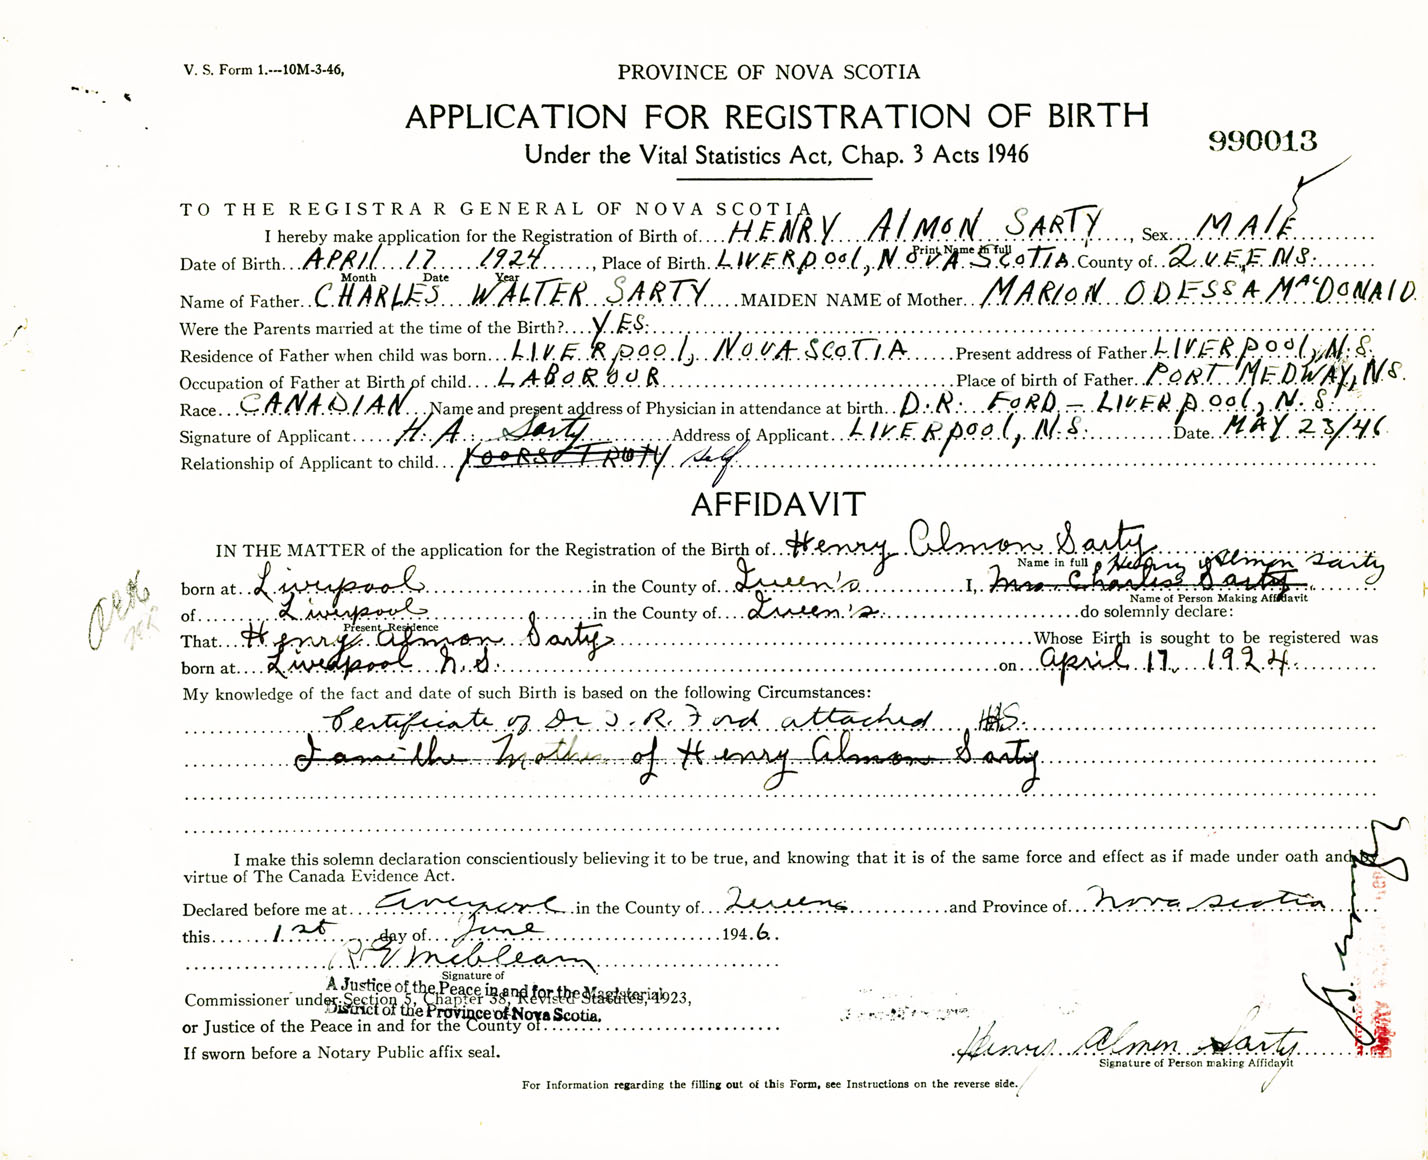 V. S. Form 1.---10M-3-46,
PROVINCE OF NOVA SCOTIA
APPLICATION FOR REGISTRATION OF BIRTH
990013
Under the Vital Statistics Act, Chap. 3 Acts 1946
TO THE REGISTRA R GENERAL OF NOVA SCOTIA
I hereby make application for the Registration of Birth of....HENRY ALMON SARTY, Sex...MALE
Print Name in full
Date of Birth...APRIL 17 1924, Place of Birth.LIVERPOOL, NOVA SCOTIA.County of..QUEENS.
Month Date Year
Name of Father..CHARLES WALTER SARTY....MAIDEN NAME of Mother..MARION ODESSA MacDONALD
Were the Parents married at the time of the Birth?....YES.
Residence of Father when child was born...LIVERPOOL, NOVA SCOTIA......Present address of Father.LIVERPOOL, N.S.
Occupation of Father at Birth of child....LABOROUR Place of birth of Father..PORT MEDWAY, N.S.
Race...CANADIAN...Name and present address of Physician in attendance at birth..D.R. FORD – LIVERPOOL, N.S.
Signature of Applicant.....H. A. Sarty Address of Applicant..LIVERPOOL, N.S. Date..MAY 23/46
Relationship of Applicant to child... self
AFFIDAVIT
IN THE MATTER of the application for the Registration of the Birth of..Henry Almon Sarty
Name in full Henry Almon Sarty
born at..Liverpool in the County of..Queen's I, Mrs Charles Sarty
Name of Person Making Affidavit
of Liverpool in the County of..Queen's do solemnly declare:
Present Residence
That...Henry Almon Sarty Whose Birth is sought to be registered was
born at Liverpool N.S. on April 17, 1924.
My knowledge of the fact and date of such Birth is based on the following Circumstances:
Certificate of Dr J. R. Ford attached HAS.
I am the Mother of Henry Almon Sarty
I make this solemn declaration conscientiously believing it to be true, and knowing that it is of the same force and effect as if made under oath and by
virtue of The Canada Evidence Act.
Declared before me at Liverpool in the County of Queens and Province of...Nova Scotia
this 1st day of June 1946.
Signature of
A Justice of the Peace in and for the Magisterial
Commissioner under Section 5, Chapter 38, Revised Statutes, 1923,
District of the Province of Nova Scotia.
or Justice of the Peace in and for the County of
If sworn before a Notary Public affix seal.
Henry Almon Sarty
Signature of Person making Affidavit
For Information regarding the filling out of this Form, see Instructions on the reverse side.